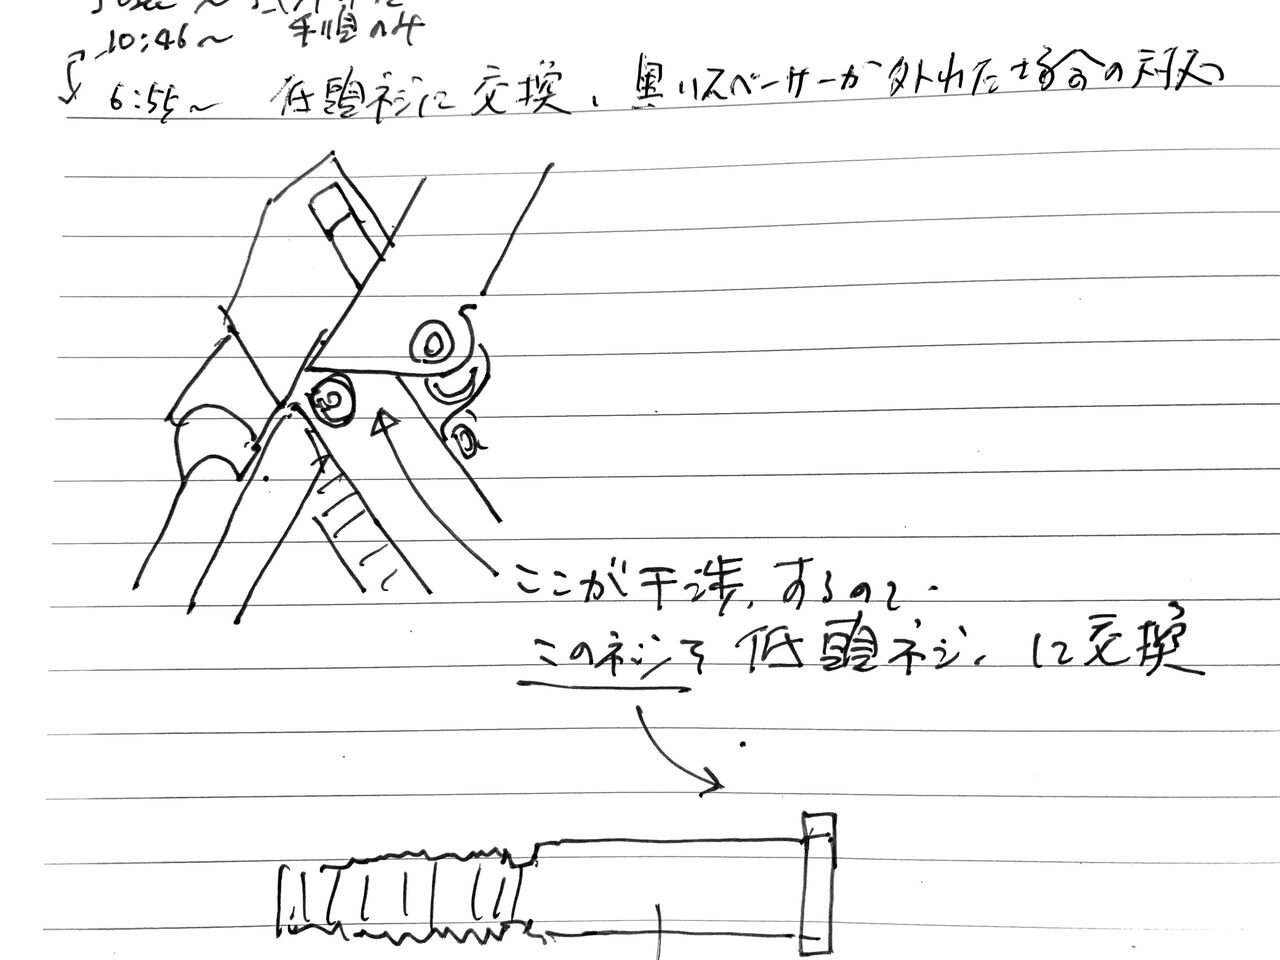 10:46〜 手順のみ
6:55〜 低頭ネジに交換、奥のスペーサーが外れた場合の対処
ここが干渉、するので
このネジを低頭ネジ、に交換